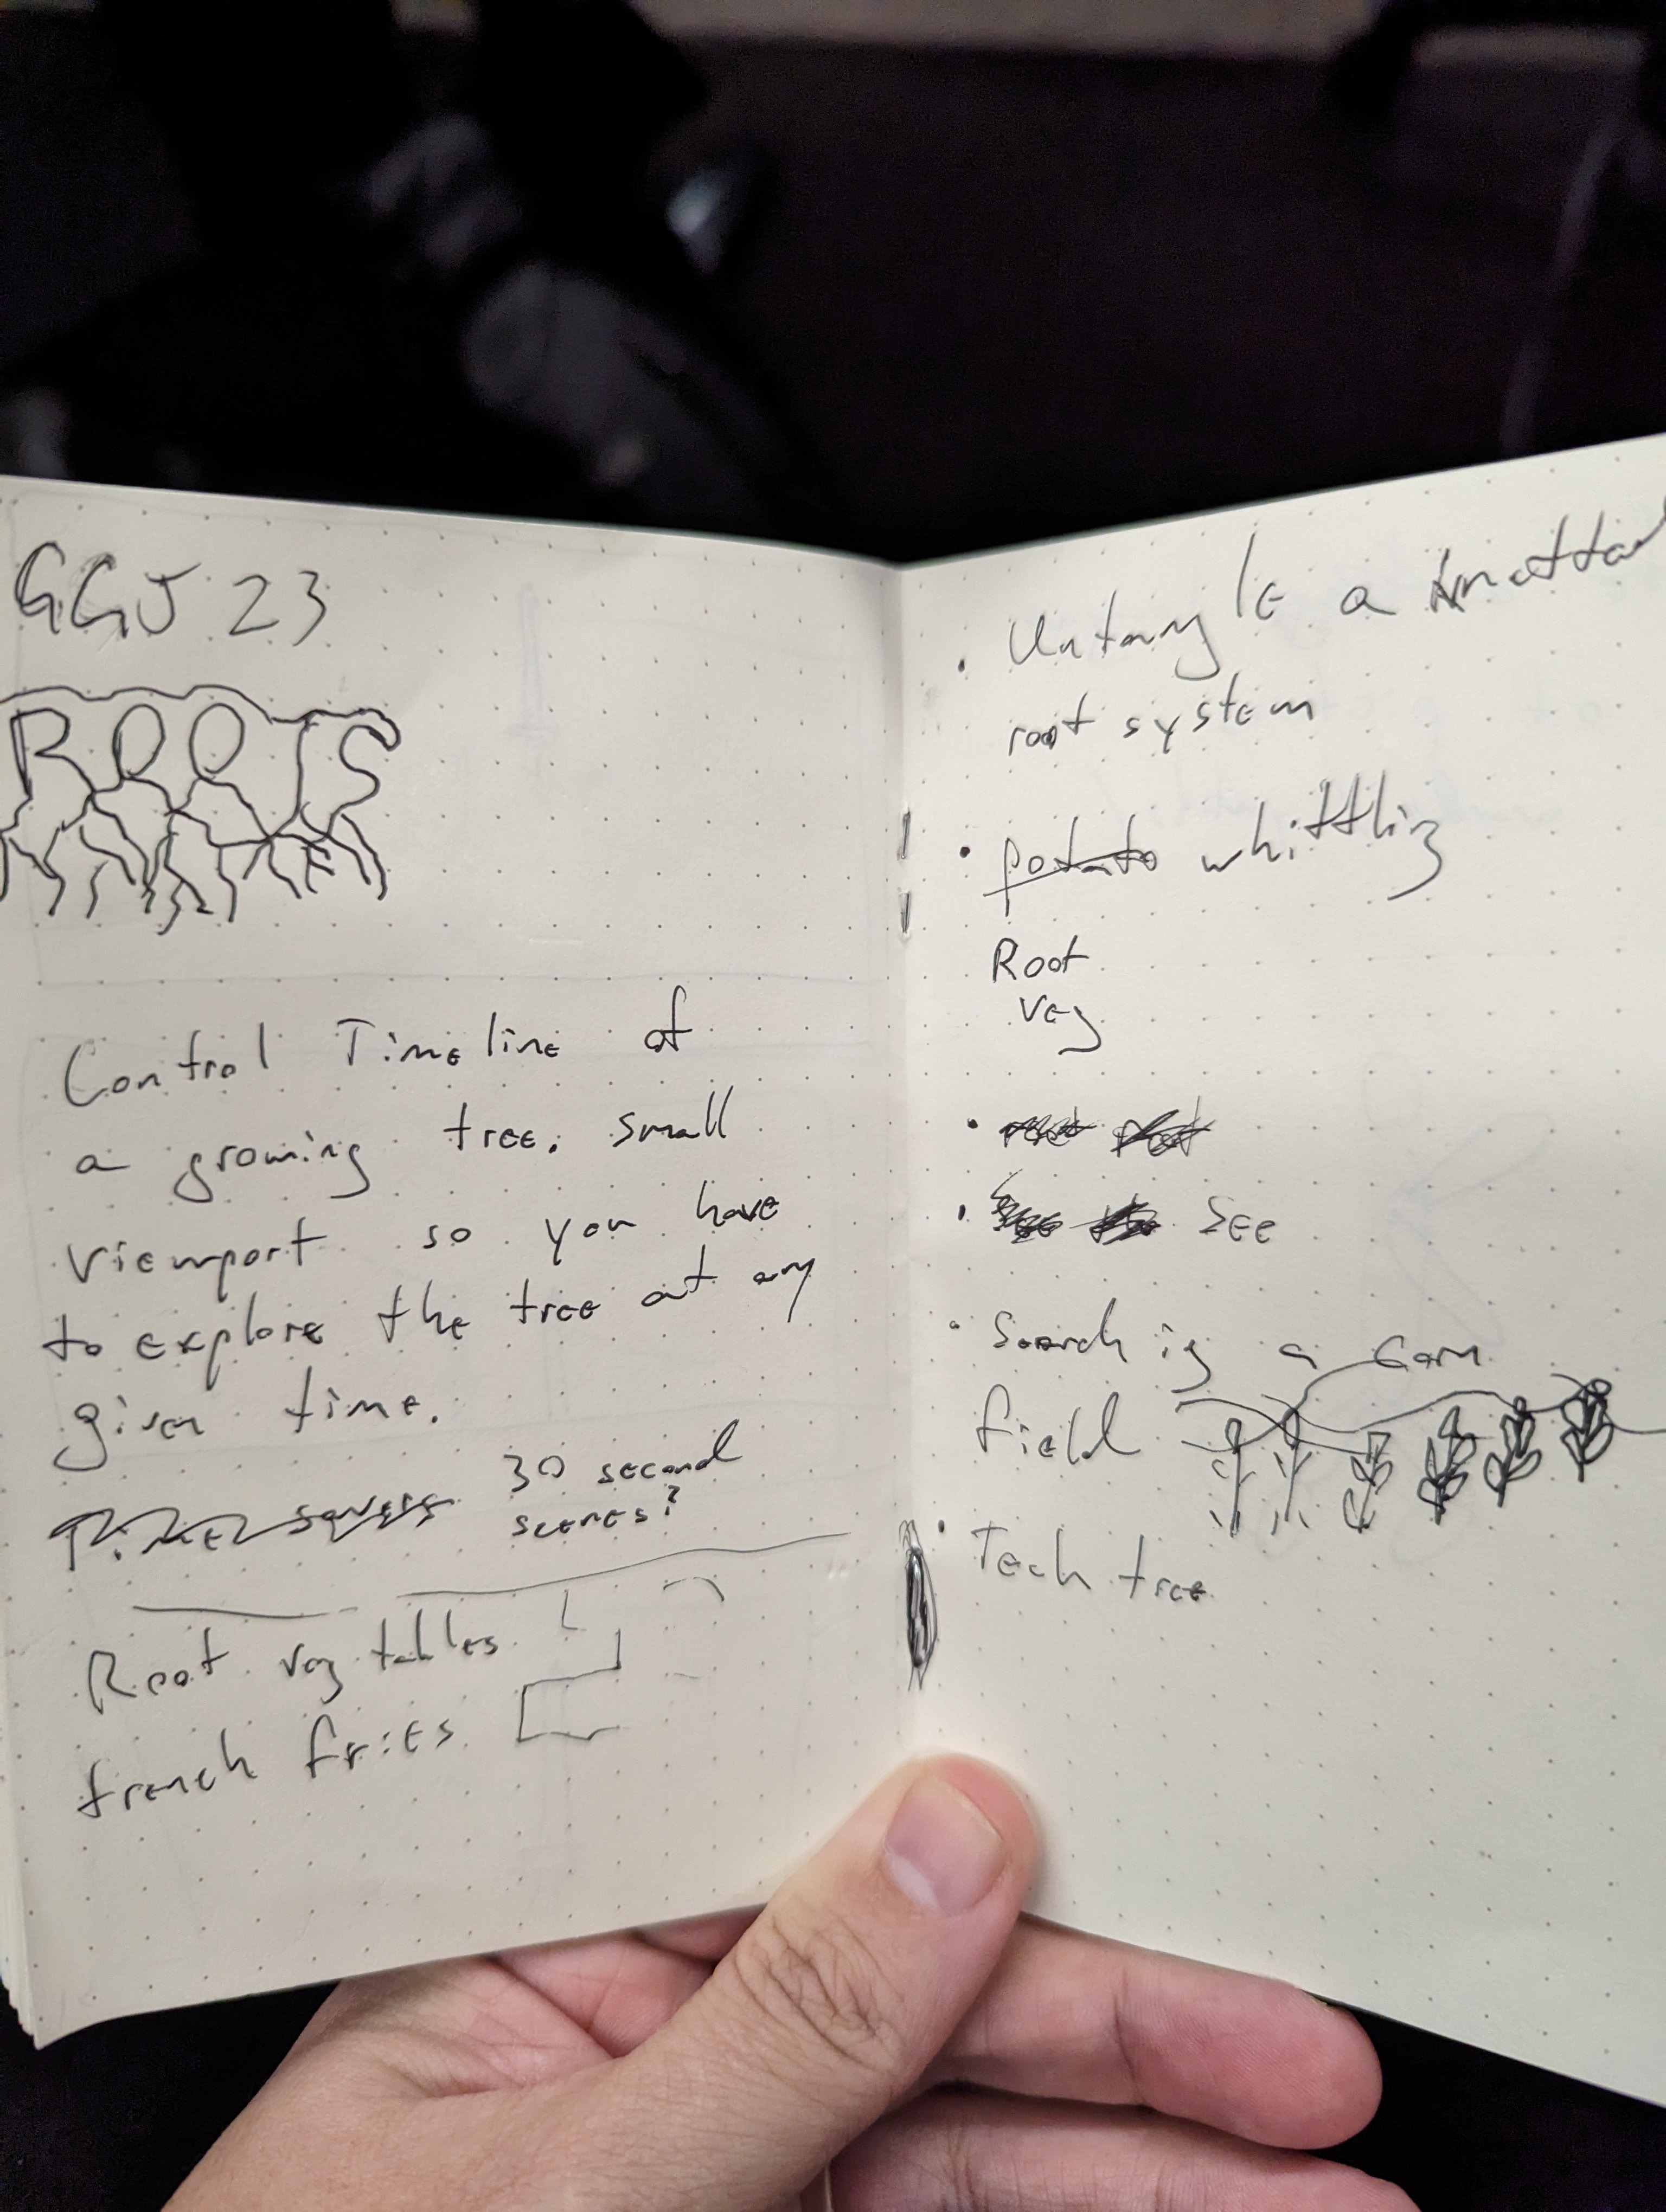 GGJ 23
ROOTS
Control Timeline of
a growing tree. small
viewport so you have
to explore the tree at any
given time.
30 second
scenes?
Root veg tables
french fries
• Untangle a knotted
root system
• potato whittling
Root
veg
•
• See
• Search ig a Corn
field
• Tech tree